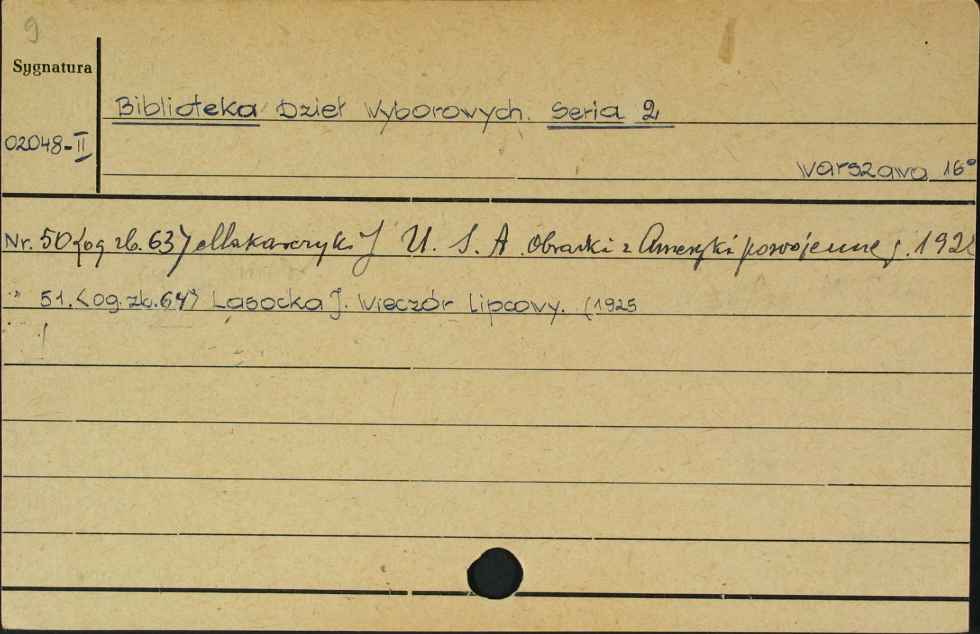 9
Sygnatura
Biblioteka Dzieł Wyborowych. Seria 2
02048-II
Warszawa 16°
Nr. 50 <og. zb. 63> Makarczyk J U. S. A. Obrazki z Ameryki powojennej. 192
" 51. <og. zb. 64> Lasocka J. Wieczór lipcowy. (1925